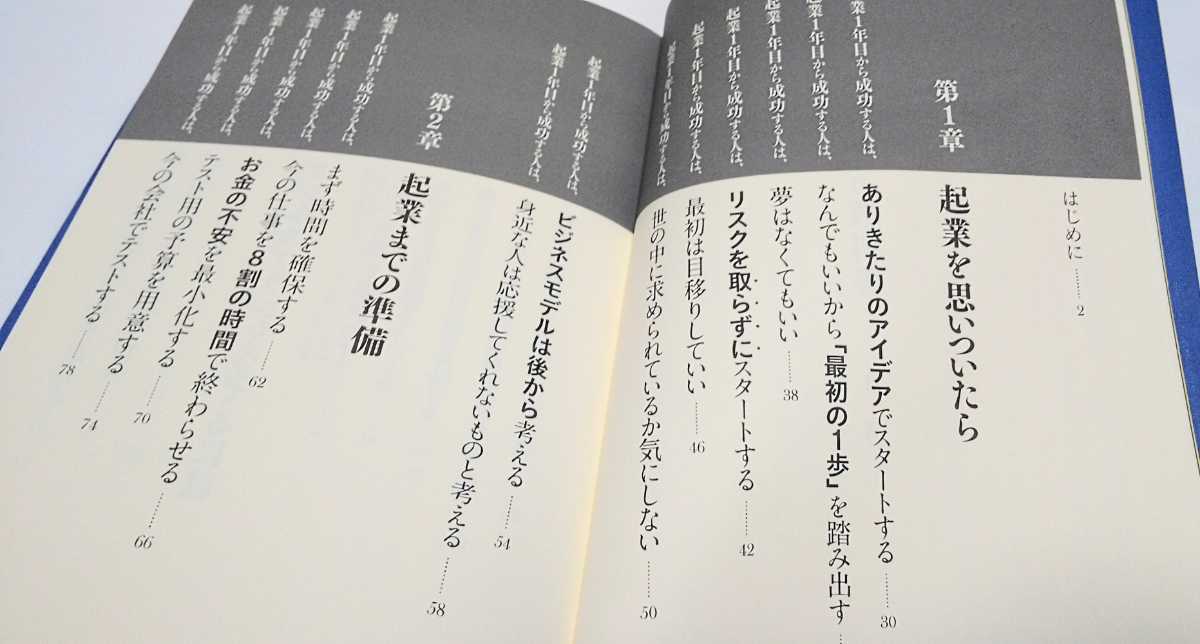 はじめに ……… 2
第1章
起業を思いついたら
起業1年目から成功する人は、
ありきたりのアイデアでスタートする ……… 30
起業1年目から成功する人は、
なんでもいいから「最初の1歩」を踏み出す
起業1年目から成功する人は、
夢はなくてもいい ……… 38
起業1年目から成功する人は、
リスクを取らずにスタートする ……… 42
起業1年目から成功する人は、
最初は目移りしていい ……… 46
起業1年目から成功する人は、
世の中に求められているか気にしない ……… 50
起業1年目から成功する人は、
ビジネスモデルは後から考える ……… 54
起業1年目から成功する人は、
身近な人は応援してくれないものと考える ……… 58
第2章
起業までの準備
起業1年目から成功する人は、
まず時間を確保する ……… 62
起業1年目から成功する人は、
今の仕事を8割の時間で終わらせる ……… 66
起業1年目から成功する人は、
お金の不安を最小化する ……… 70
起業1年目から成功する人は、
テスト用の予算を用意する ……… 74
起業1年目から成功する人は、
今の会社でテストする ……… 78